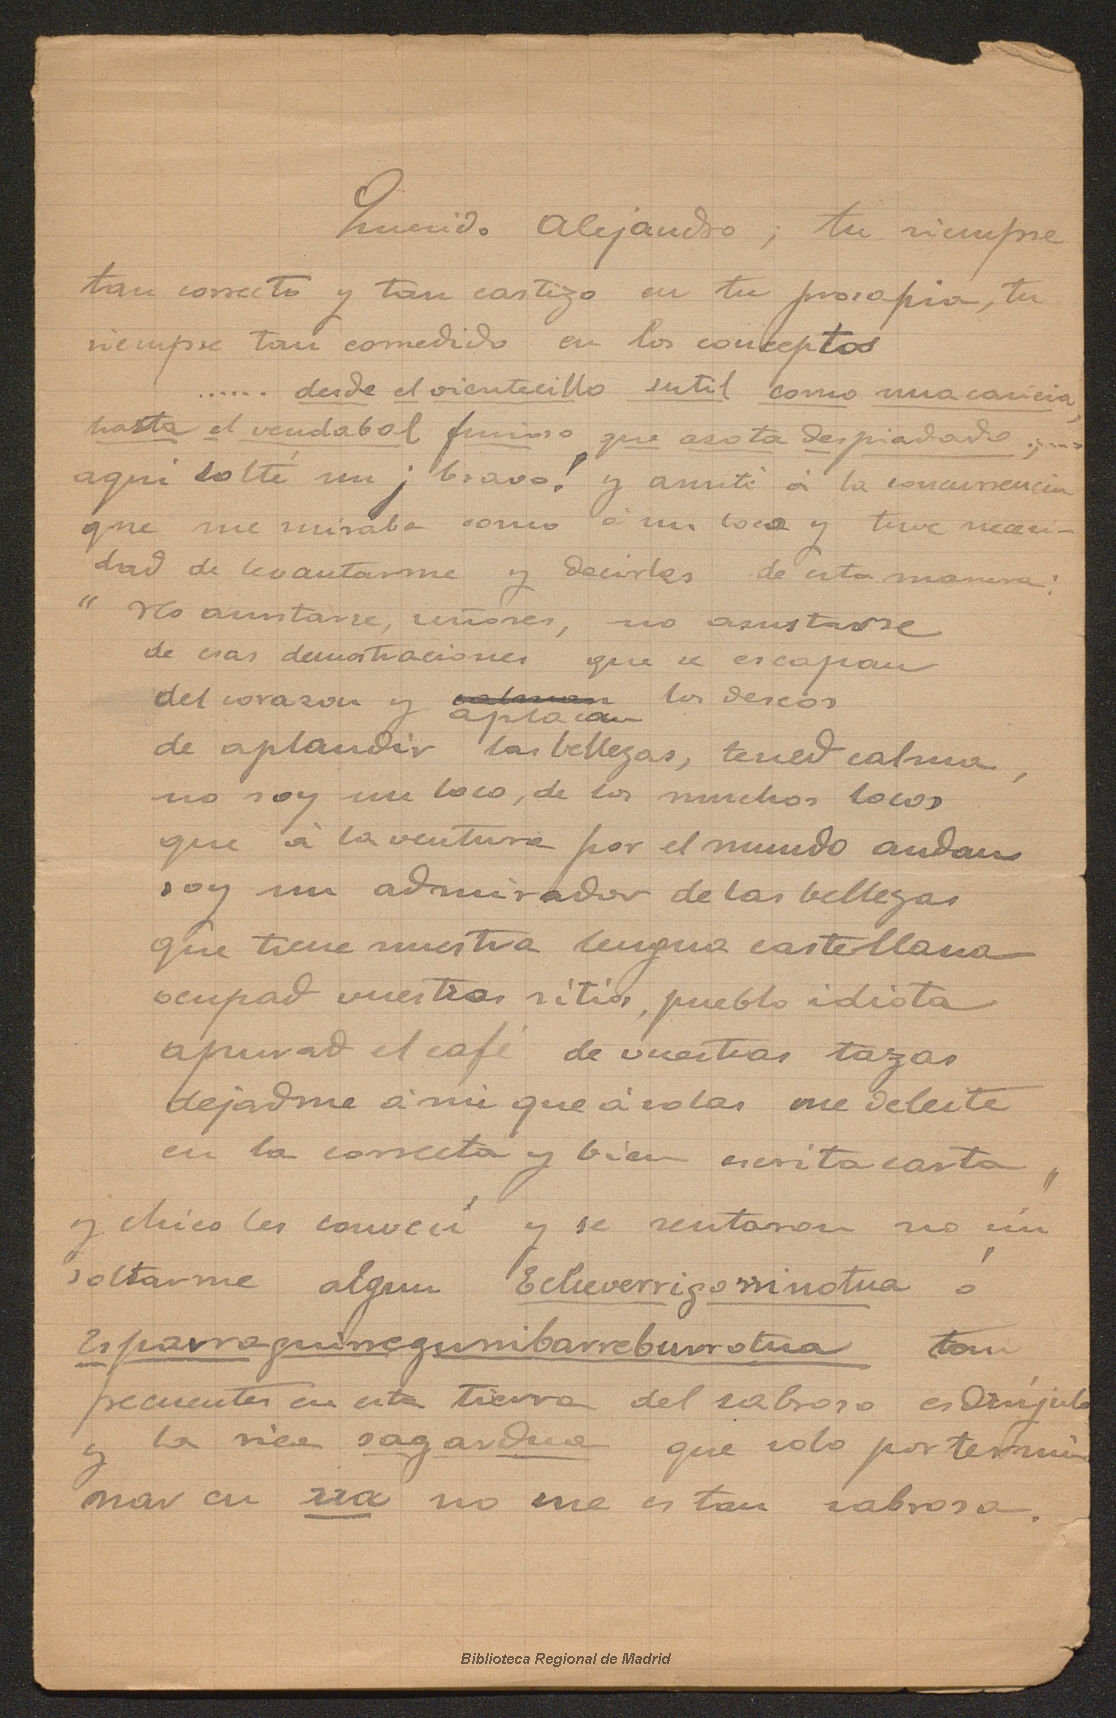 Querido Alejandro; tu siempre
tan correcto y tan castizo en tu prosapia, tu
siempre tan comedido en los conceptos
...... desde el vientecillo sutil como una caricia,
hasta el vendabal furioso que azota despiadado ;....
aqui solté un ¡bravo! y asusté á la concurrencia
que me miraba como á un loco y tuve necesi-
dad de levantarme y decirles de esta manera:
" No asustarse, señores, no asustarse
de esas demostraciones que se escapan
del corazon y calman los deseos
aplacan
de aplaudir las bellezas, tened calma,
no soy un loco, de los muchos locos
que á la ventura por el mundo andan
soy un admirador de las bellezas
que tiene nuestra lengua castellana
ocupad vuestros sitios, pueblo idiota
apurad el café de vuestras tazas
dejadme á mi que á solas me deleite
en la correcta y bien escrita carta "
y chico les convecí y se sentaron no sin
soltarme algun Echeverrigorrinotua ó
Esparraguirregurribarreburrotua tan
frecuentes en esta tierra del sabroso esdrújulo
y la rica sagardua que solo por termi
nar en rra no me es tan sabrosa.
Biblioteca Regional de Madrid